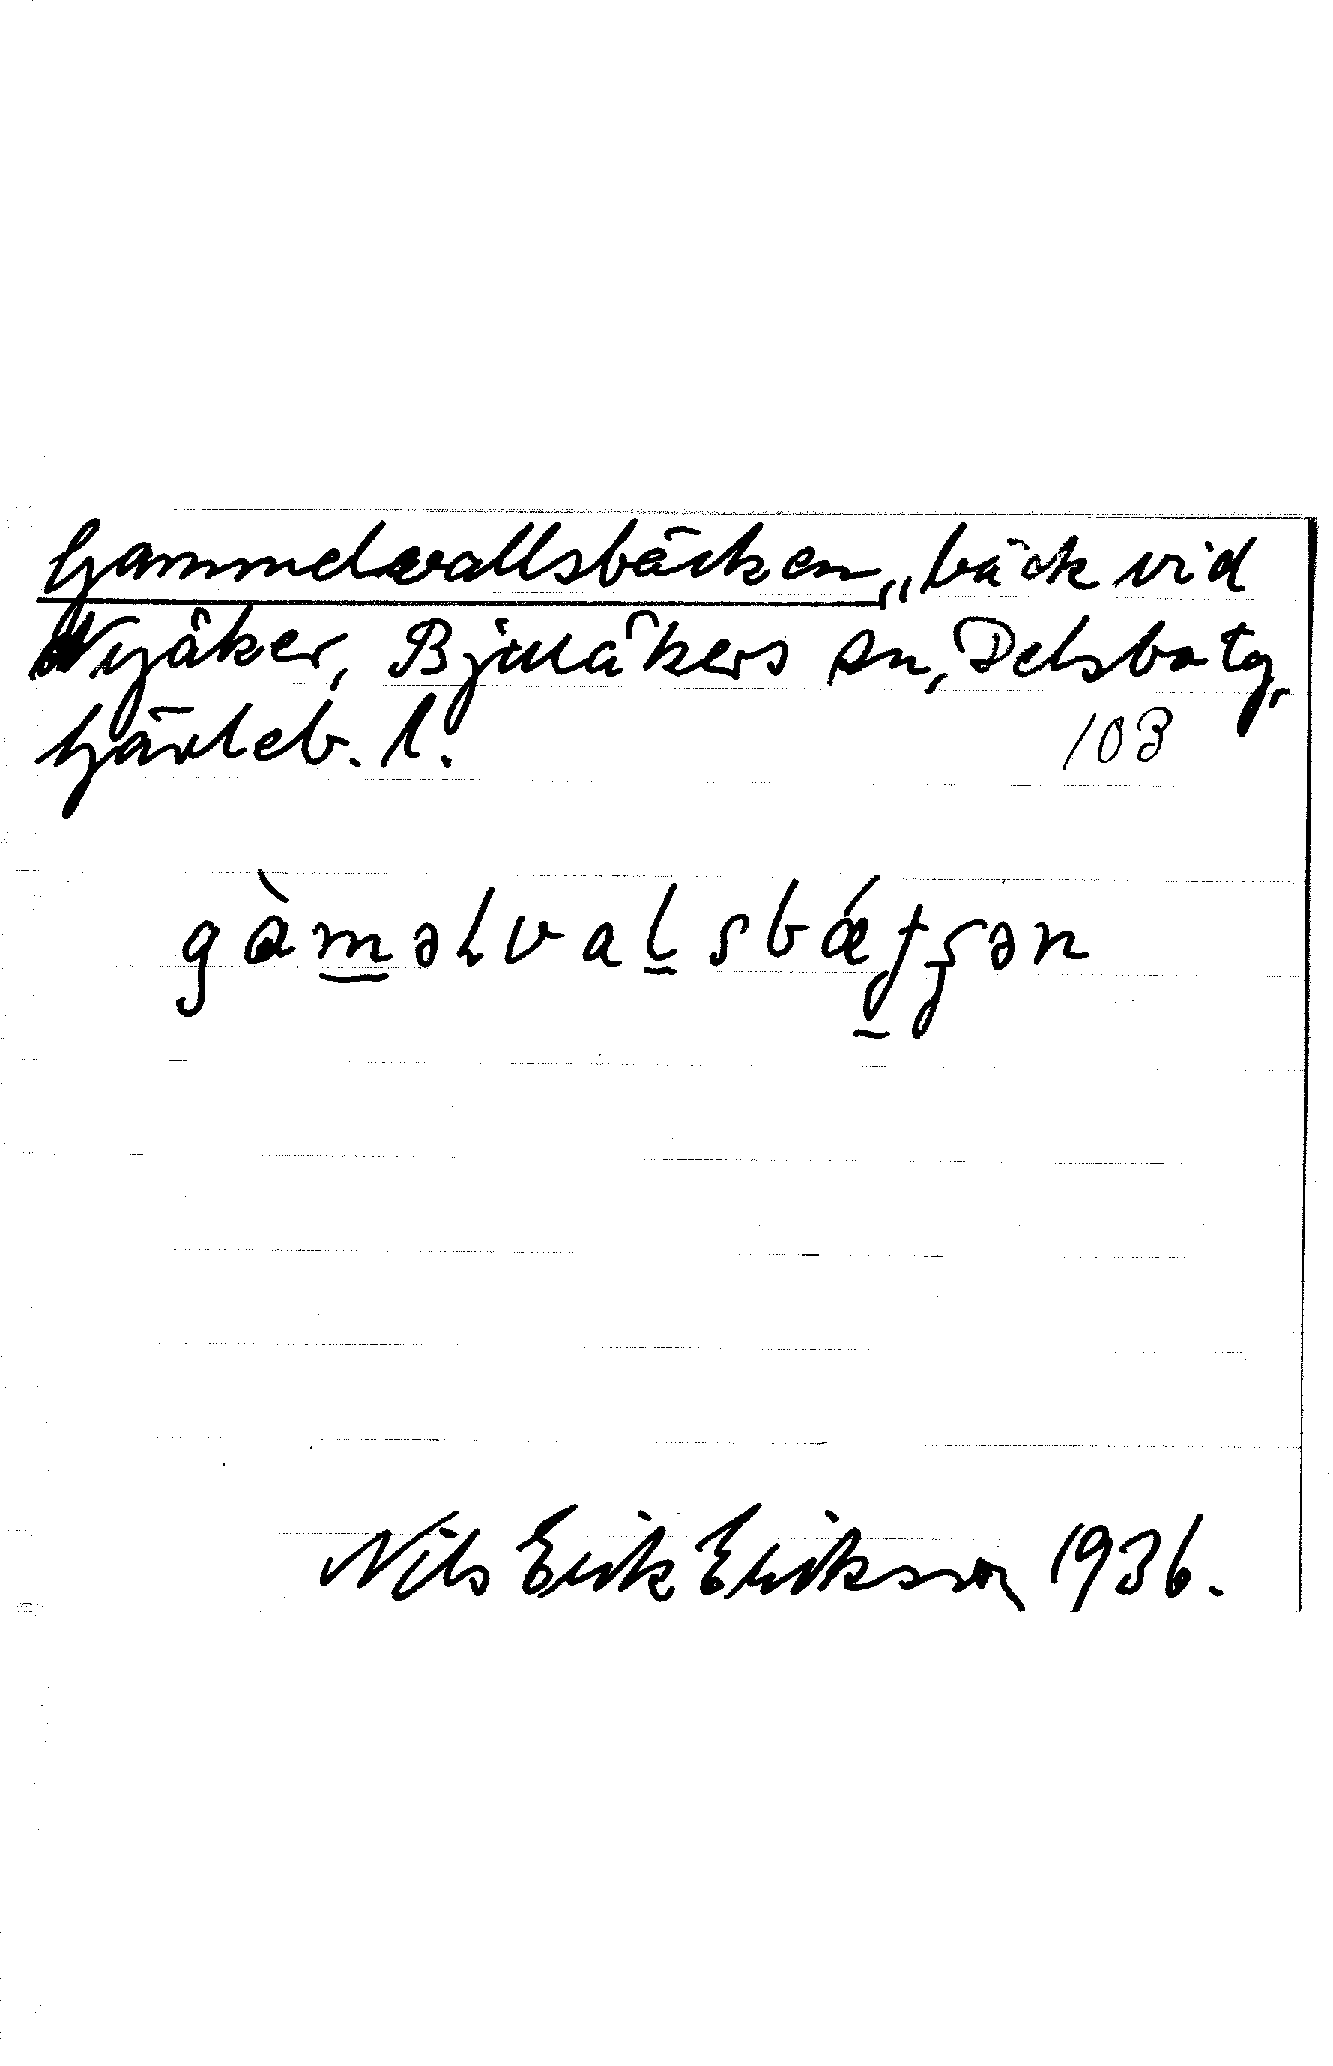 Gammelvallsbäcken, bäck vid
Nyåker, Bjuråkers sn, Delsbo tg,
Gävleb. l.
103
gàm̲əlval̲sbǽt̲ʂən
Nils Erik Eriksson 1936.